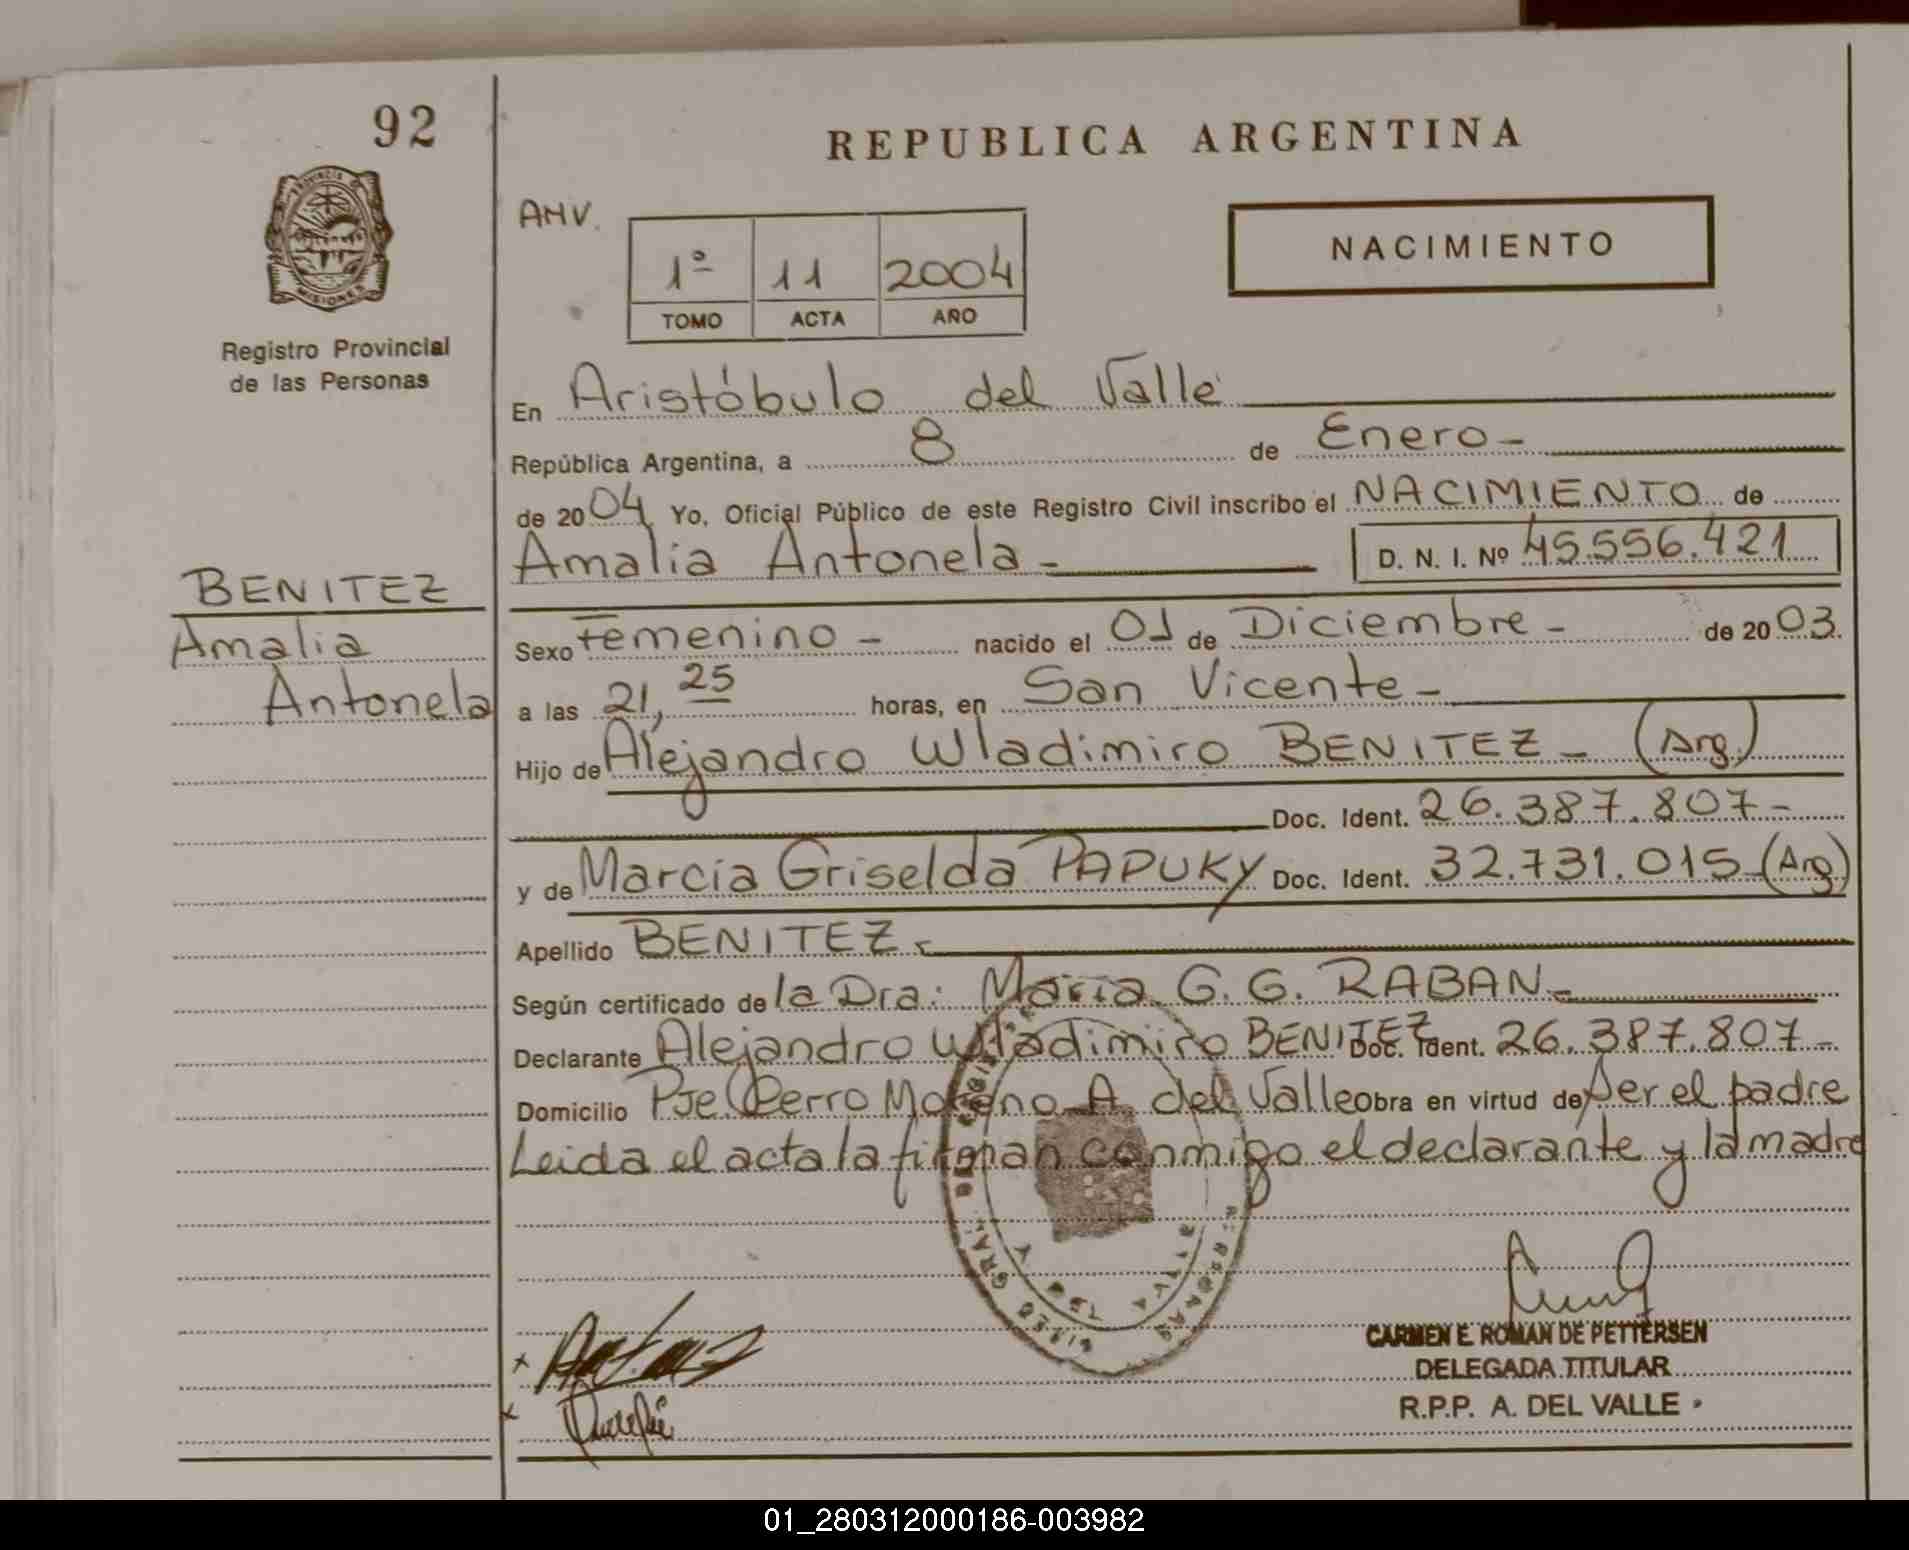 92
REPUBLICA ARGENTINA
PROVINCIA DE
MISIONES
Registro Provincial
de las Personas
ANV.
1º 11 2004
TOMO ACTA AÑO
NACIMIENTO
En Aristóbulo del Valle
República Argentina, a 8 de Enero -
de 2004 Yo, Oficial Público de este Registro Civil inscribo el NACIMIENTO de
Amalia Antonela - D. N. I. Nº 45.556.421
BENITEZ
Amalia
Antonela
Sexo Femenino - nacido el 01 de Diciembre - de 2003.
a las 21,25 horas, en San Vicente -
Hijo de Alejandro Wladimiro BENITEZ - (Arg.)
Doc. Ident. 26.387.807 -
y de Marcia Griselda PAPUKY Doc. Ident. 32.731.015 - (Arg)
Apellido BENITEZ -
Según certificado de la Dra: María G. G. RABAN -
Declarante Alejandro Wladimiro BENITEZ Doc. Ident. 26.387.807 -
Domicilio Pje. Cerro Moreno - A. del Valle Obra en virtud de ser el padre
Leida el acta la firman conmigo el declarante y la madre
CARMEN E. ROMAN DE PETTERSEN
DELEGADA TITULAR
R.P.P. A. DEL VALLE
01_280312000186-003982